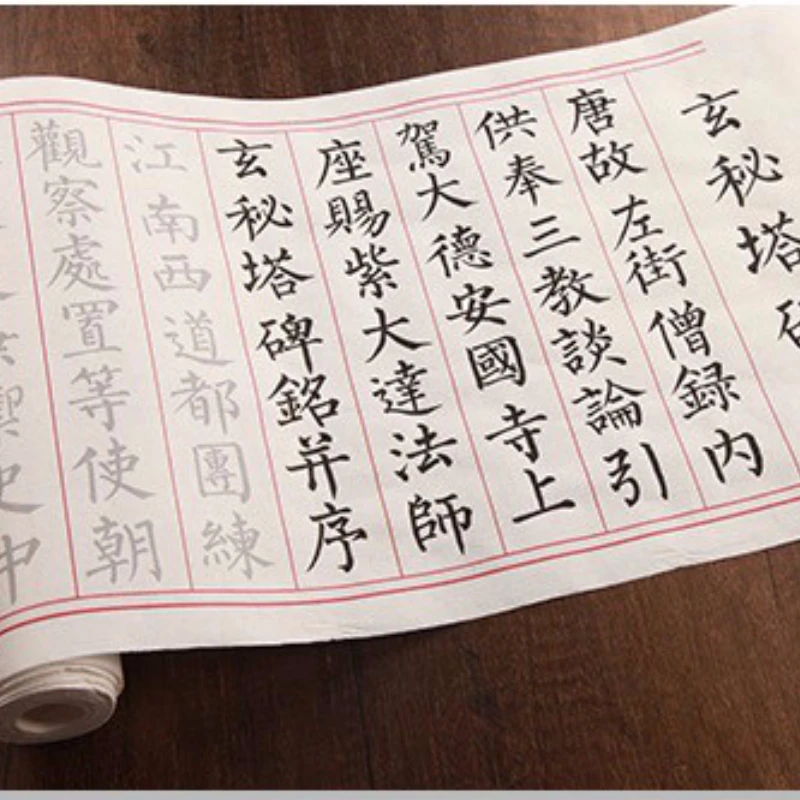 玄秘塔碑
唐故左街僧録内
供奉三教談論引
駕大德安國寺上
座賜紫大達法師
玄秘塔碑銘并序
江南西道都團練
觀察處置等使朝